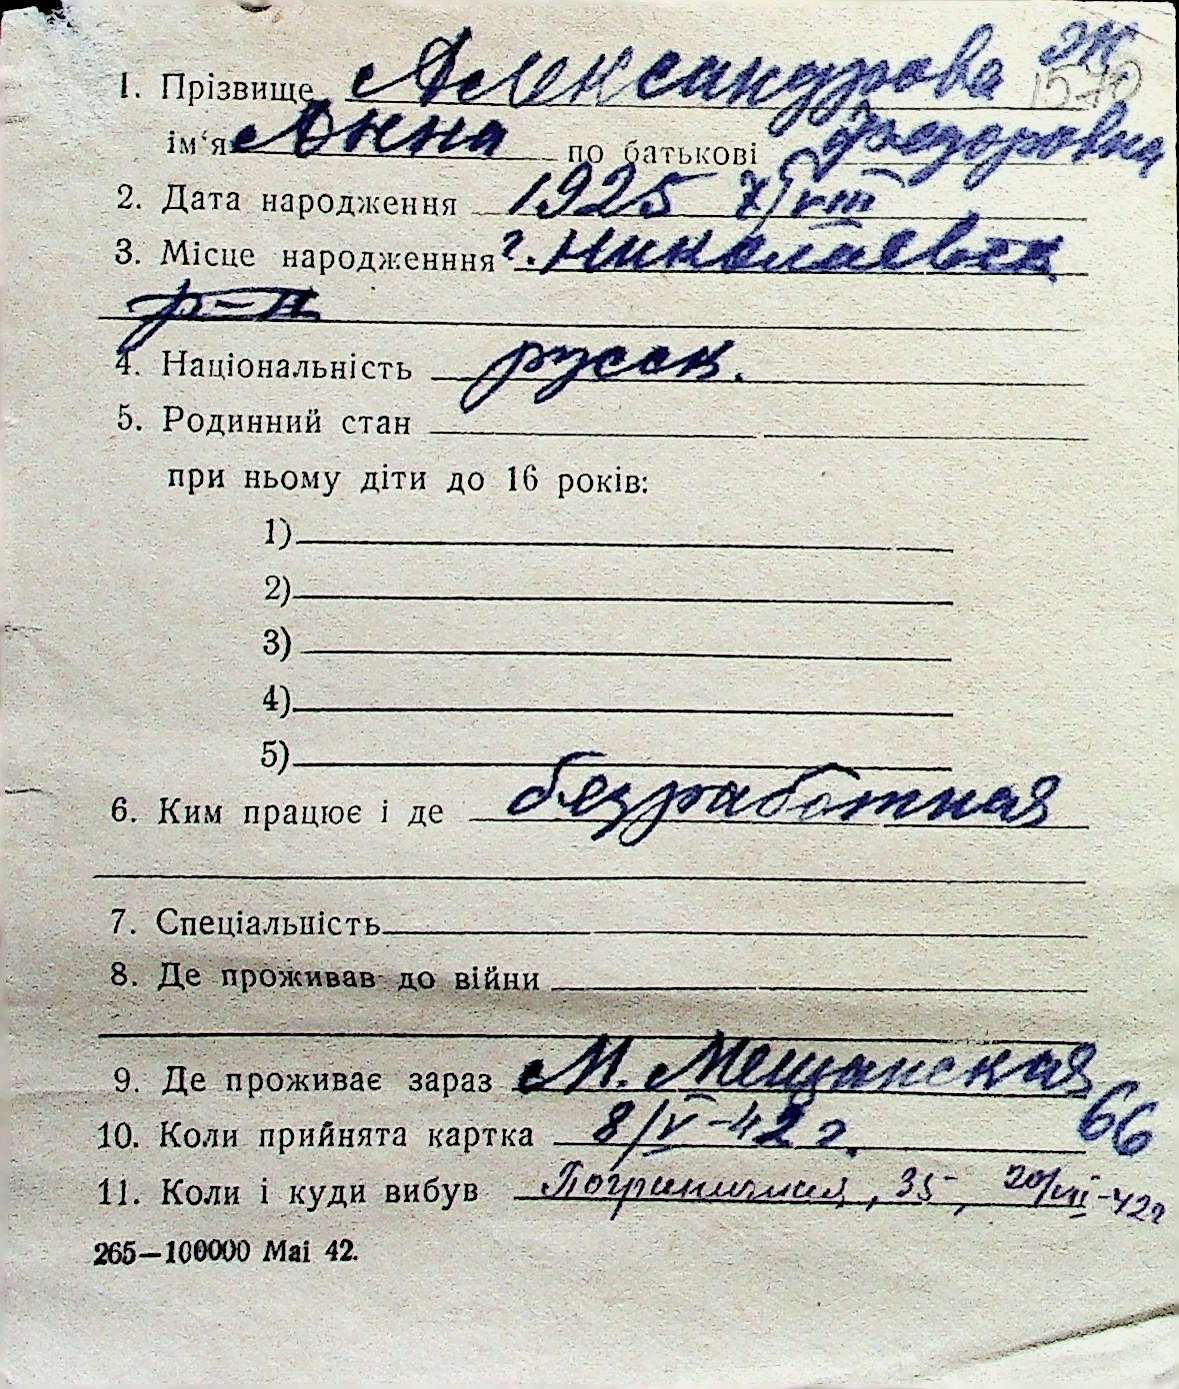 1. Прізвище Александрова Ж
1570
ім'я Анна по батькові Федоровна
2. Дата народження 1925 X/VIII
3. Місце народженння г. Николаевск
р-н
4. Національність русск.
5. Родинний стан
при ньому діти до 16 років:
1)
2)
3)
4)
5)
6. Ким працює і де безработная
7. Спеціальність
8. Де проживав до війни
9. Де проживає зараз М. Мещанская
66
10. Коли прийнята картка 8/V-42 г.
11. Коли і куди вибув Пограничная, 35, 20/VII-42г
265—100000 Маі 42.